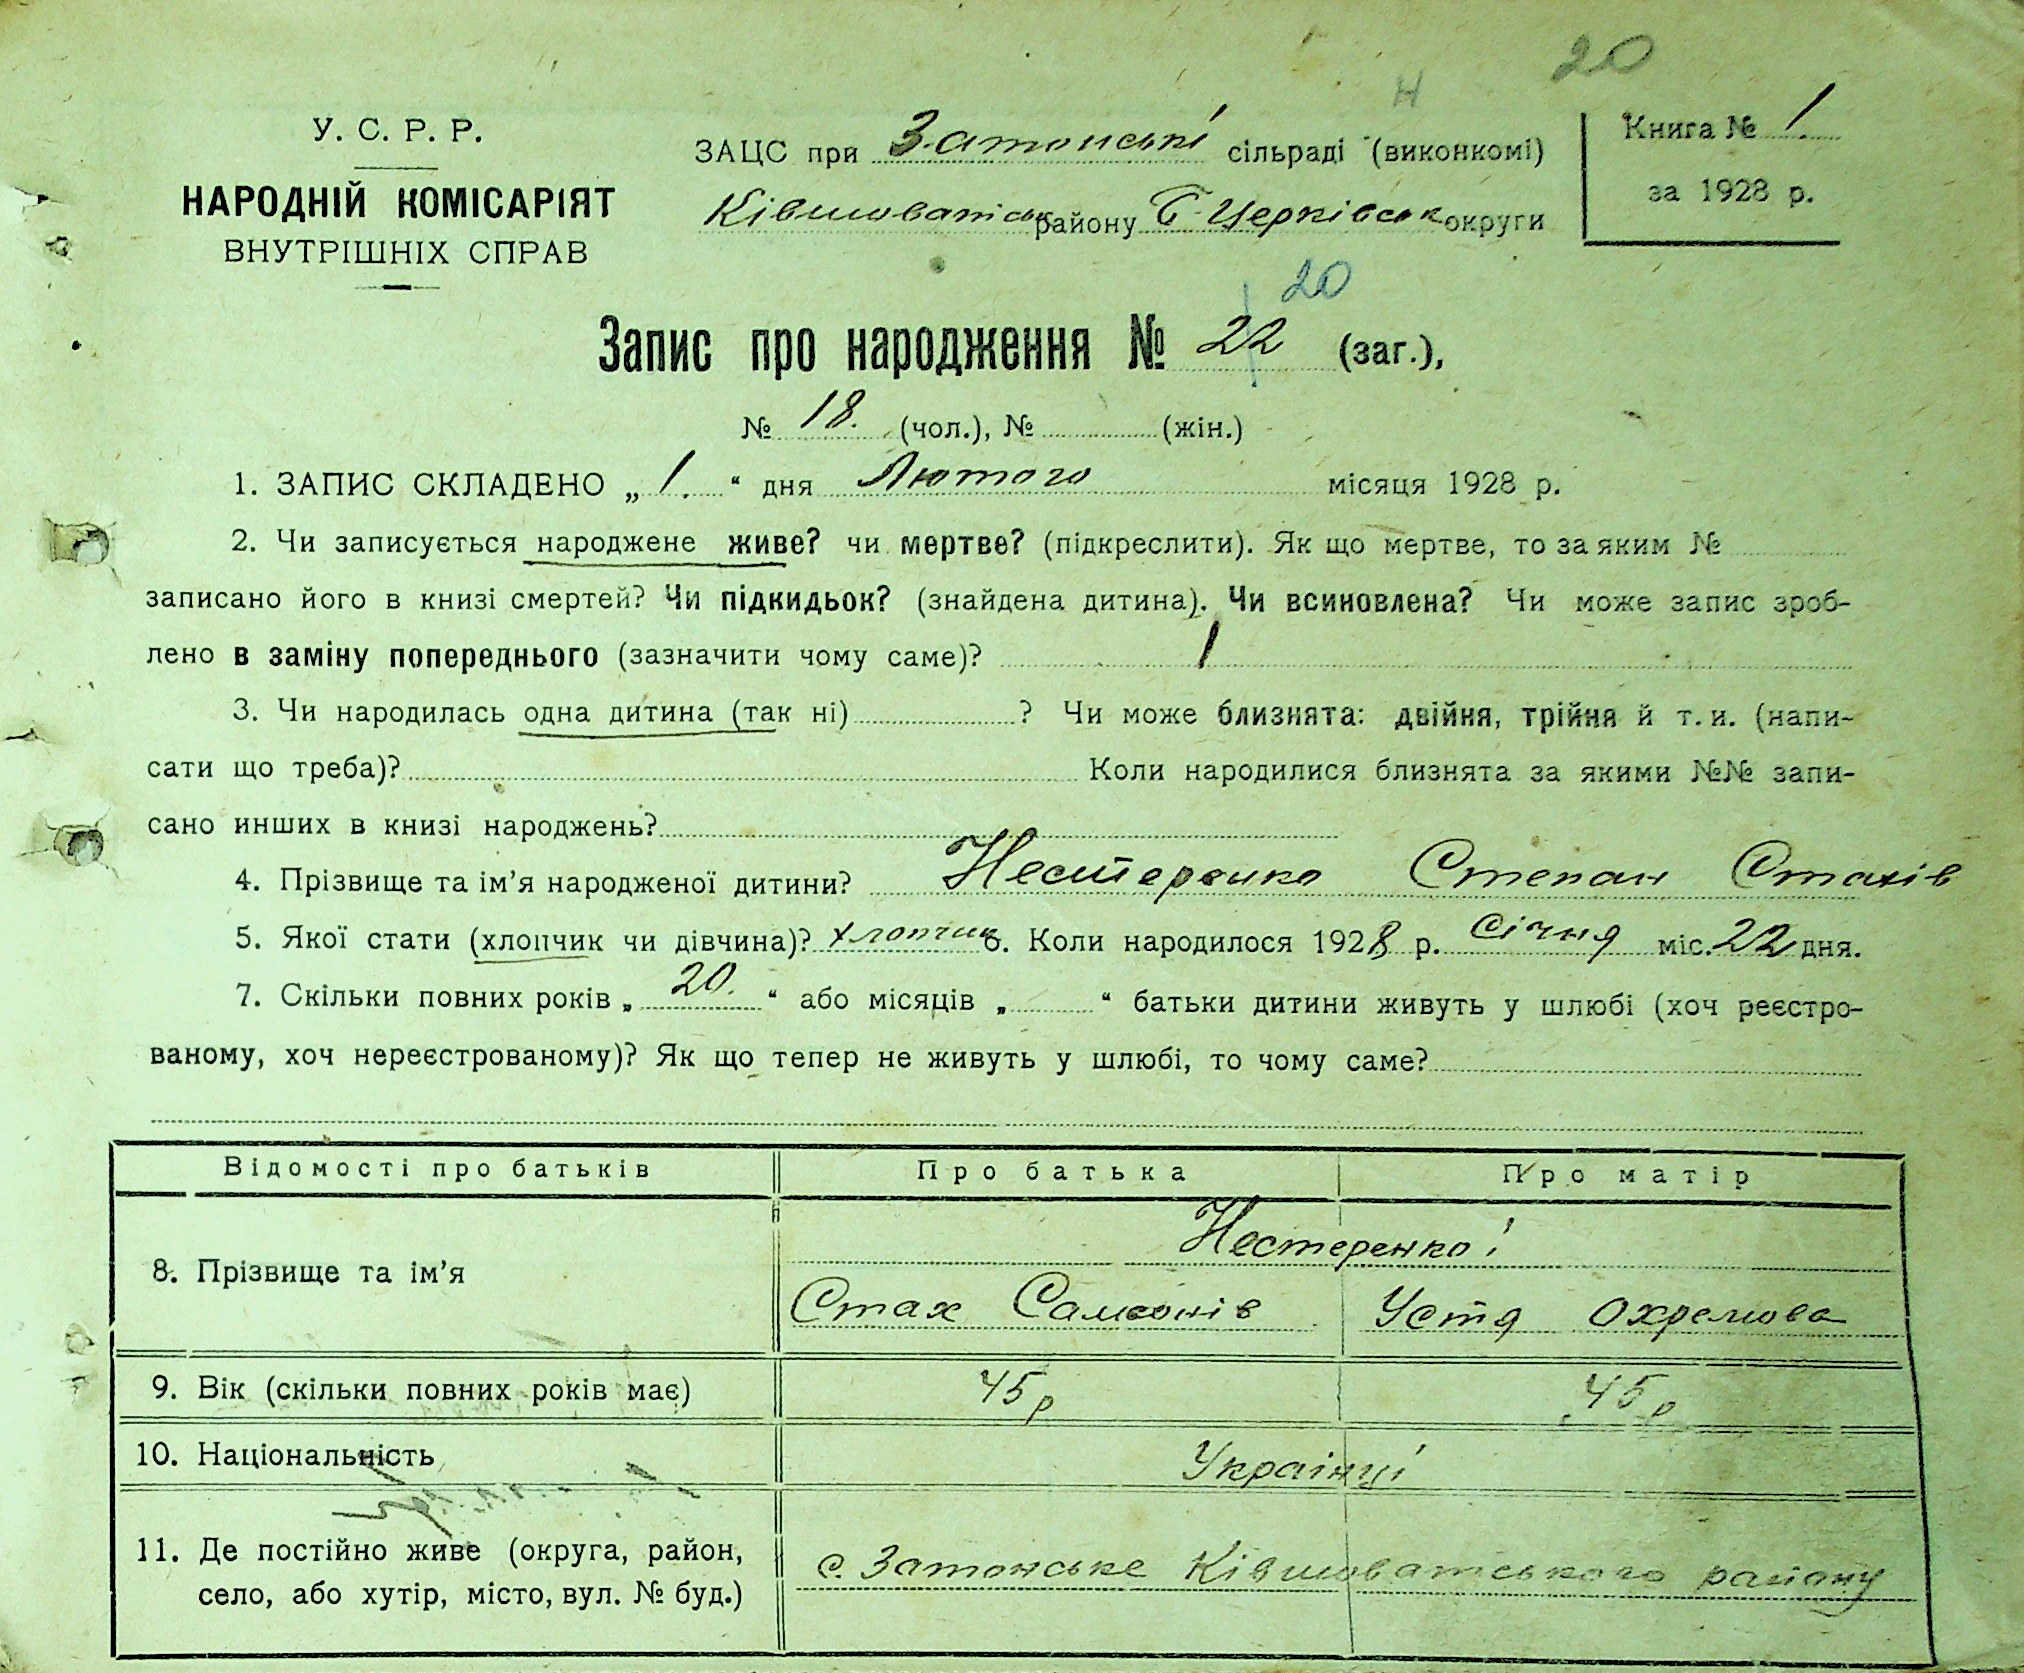 20
н
У. С. Р. Р.
НАРОДНІЙ КОМІСАРІЯТ
ВНУТРІШНІХ СПРАВ
ЗАЦС при Затонські сільраді (виконкомі)
Ківшоватськ району Б-Церківськ округи
Книга № 1.
за 1928 р.
20
Запис про народження № 22 (заг.),
№ 18. (чол.), № (жін.)
1. ЗАПИС СКЛАДЕНО „ 1. “ дня Лютого місяця 1928 р.
2. Чи записується народжене живе? чи мертве? (підкреслити). Як що мертве, то за яким №
записано його в книзі смертей? Чи підкидьок? (знайдена дитина). Чи всиновлена? Чи може запис зроб-
лено в заміну попереднього (зазначити чому саме)?
3. Чи народилась одна дитина (так ні) ? Чи може близнята: двійня, трійня й т. и. (напи-
сати що треба)? Коли народилися близнята за якими №№ запи-
сано инших в книзі народжень?
4. Прізвище та ім’я народженої дитини? Нестеренко Степан Стахів
5. Якої стати (хлопчик чи дівчина)? хлопчик 6. Коли народилося 1928 р. Січня міс. 22 дня.
7. Скільки повних років „ 20. “ або місяців „ “ батьки дитини живуть у шлюбі (хоч реєстро-
ваному, хоч нереєстрованому)? Як що тепер не живуть у шлюбі, то чому саме?
Відомості про батьків Про батька Про матір
Нестеренко́і
8. Прізвище та ім’я
Стах Самсонів Устя Охремова
9. Вік (скільки повних років має) 45 р 45 р
10. Національність Українці
11. Де постійно живе (округа, район,
село, або хутір, місто, вул. № буд.)
с. Затонське Ківшоватського району